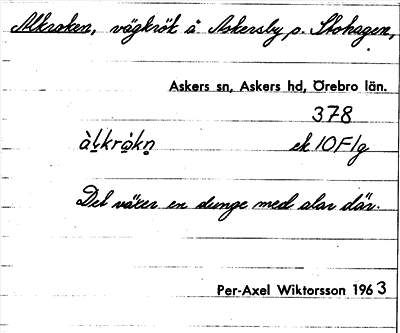 Alkroken, vägkrök å Askersby o. Skohagen,
Askers sn, Askers hd, Örebro län.
378
àl̠krók̠n̥ ek 10F1g
Det växer en dunge med alar där.
Per-Axel Wiktorsson 1963